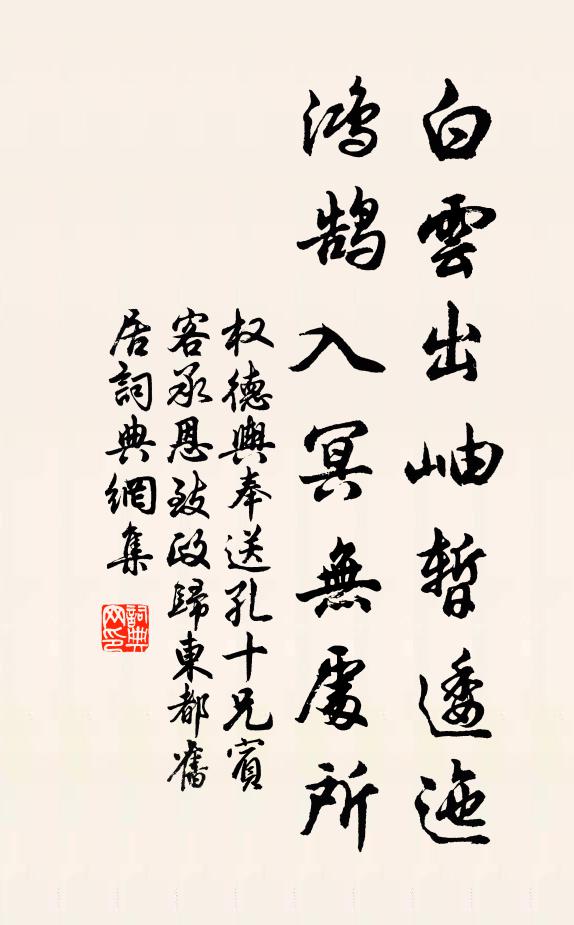 白雲出岫暫逶迤
鴻鵠入冥無處所
权德輿奉送孔十兄賓
客承恩致政歸東都舊
居詞典網集
詞典
网印